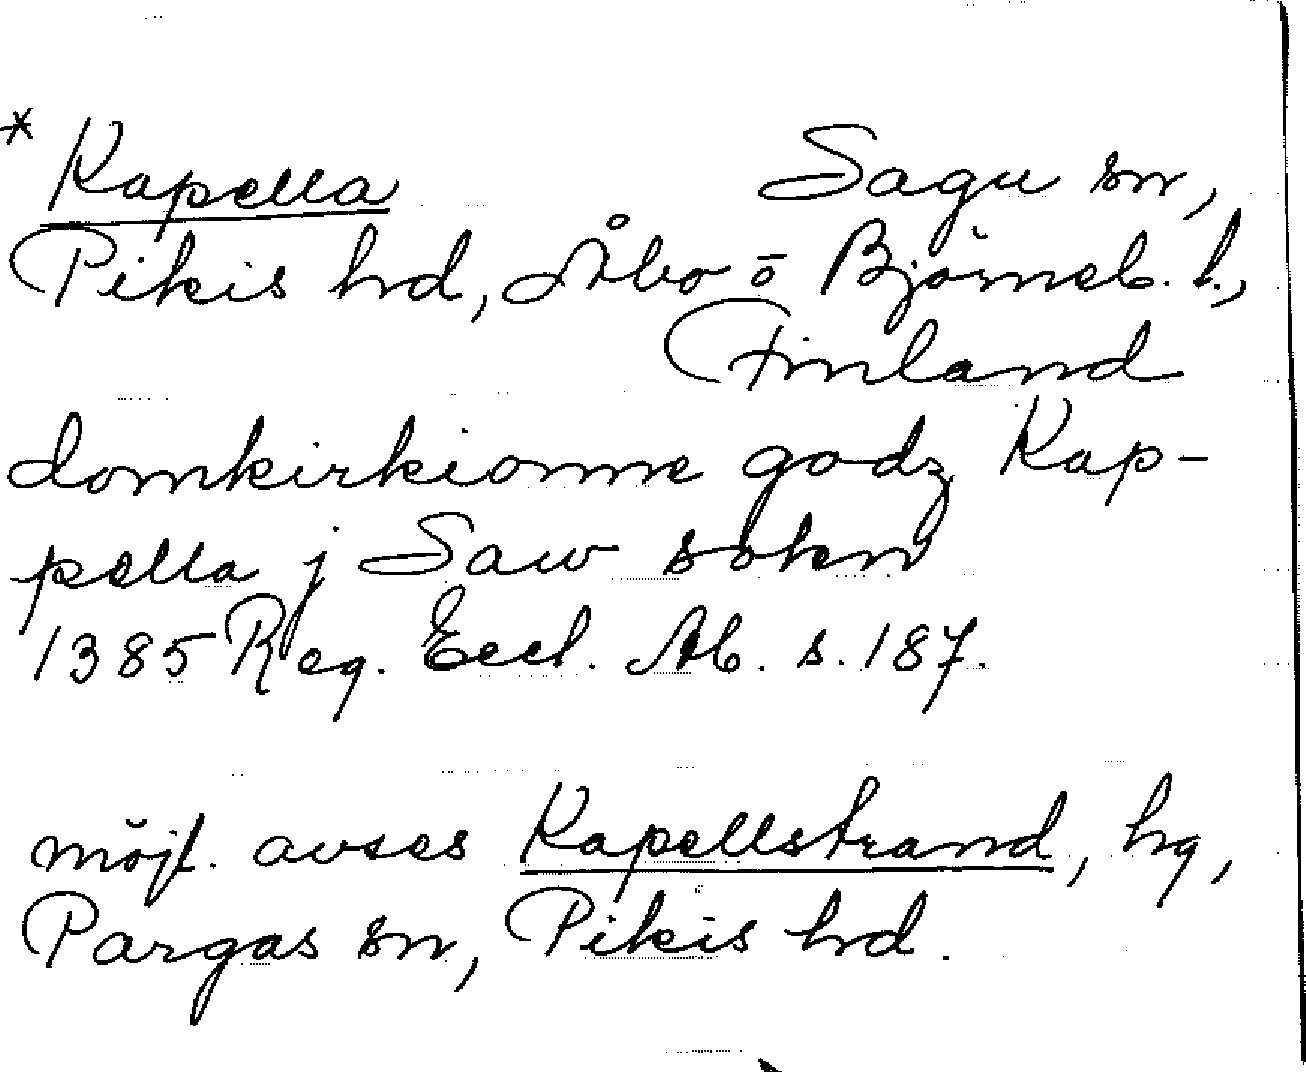 * Kapella Sagu sn,
Pikis hd, Åbo o Björneb. l.,
Finland
domkirkionne godz Kap-
pella j Saw sokn
1385 Reg. Eccl. Ab. s. 187.
möjl. avses Kapellstrand, hg,
Pargas sn, Pikis hd.